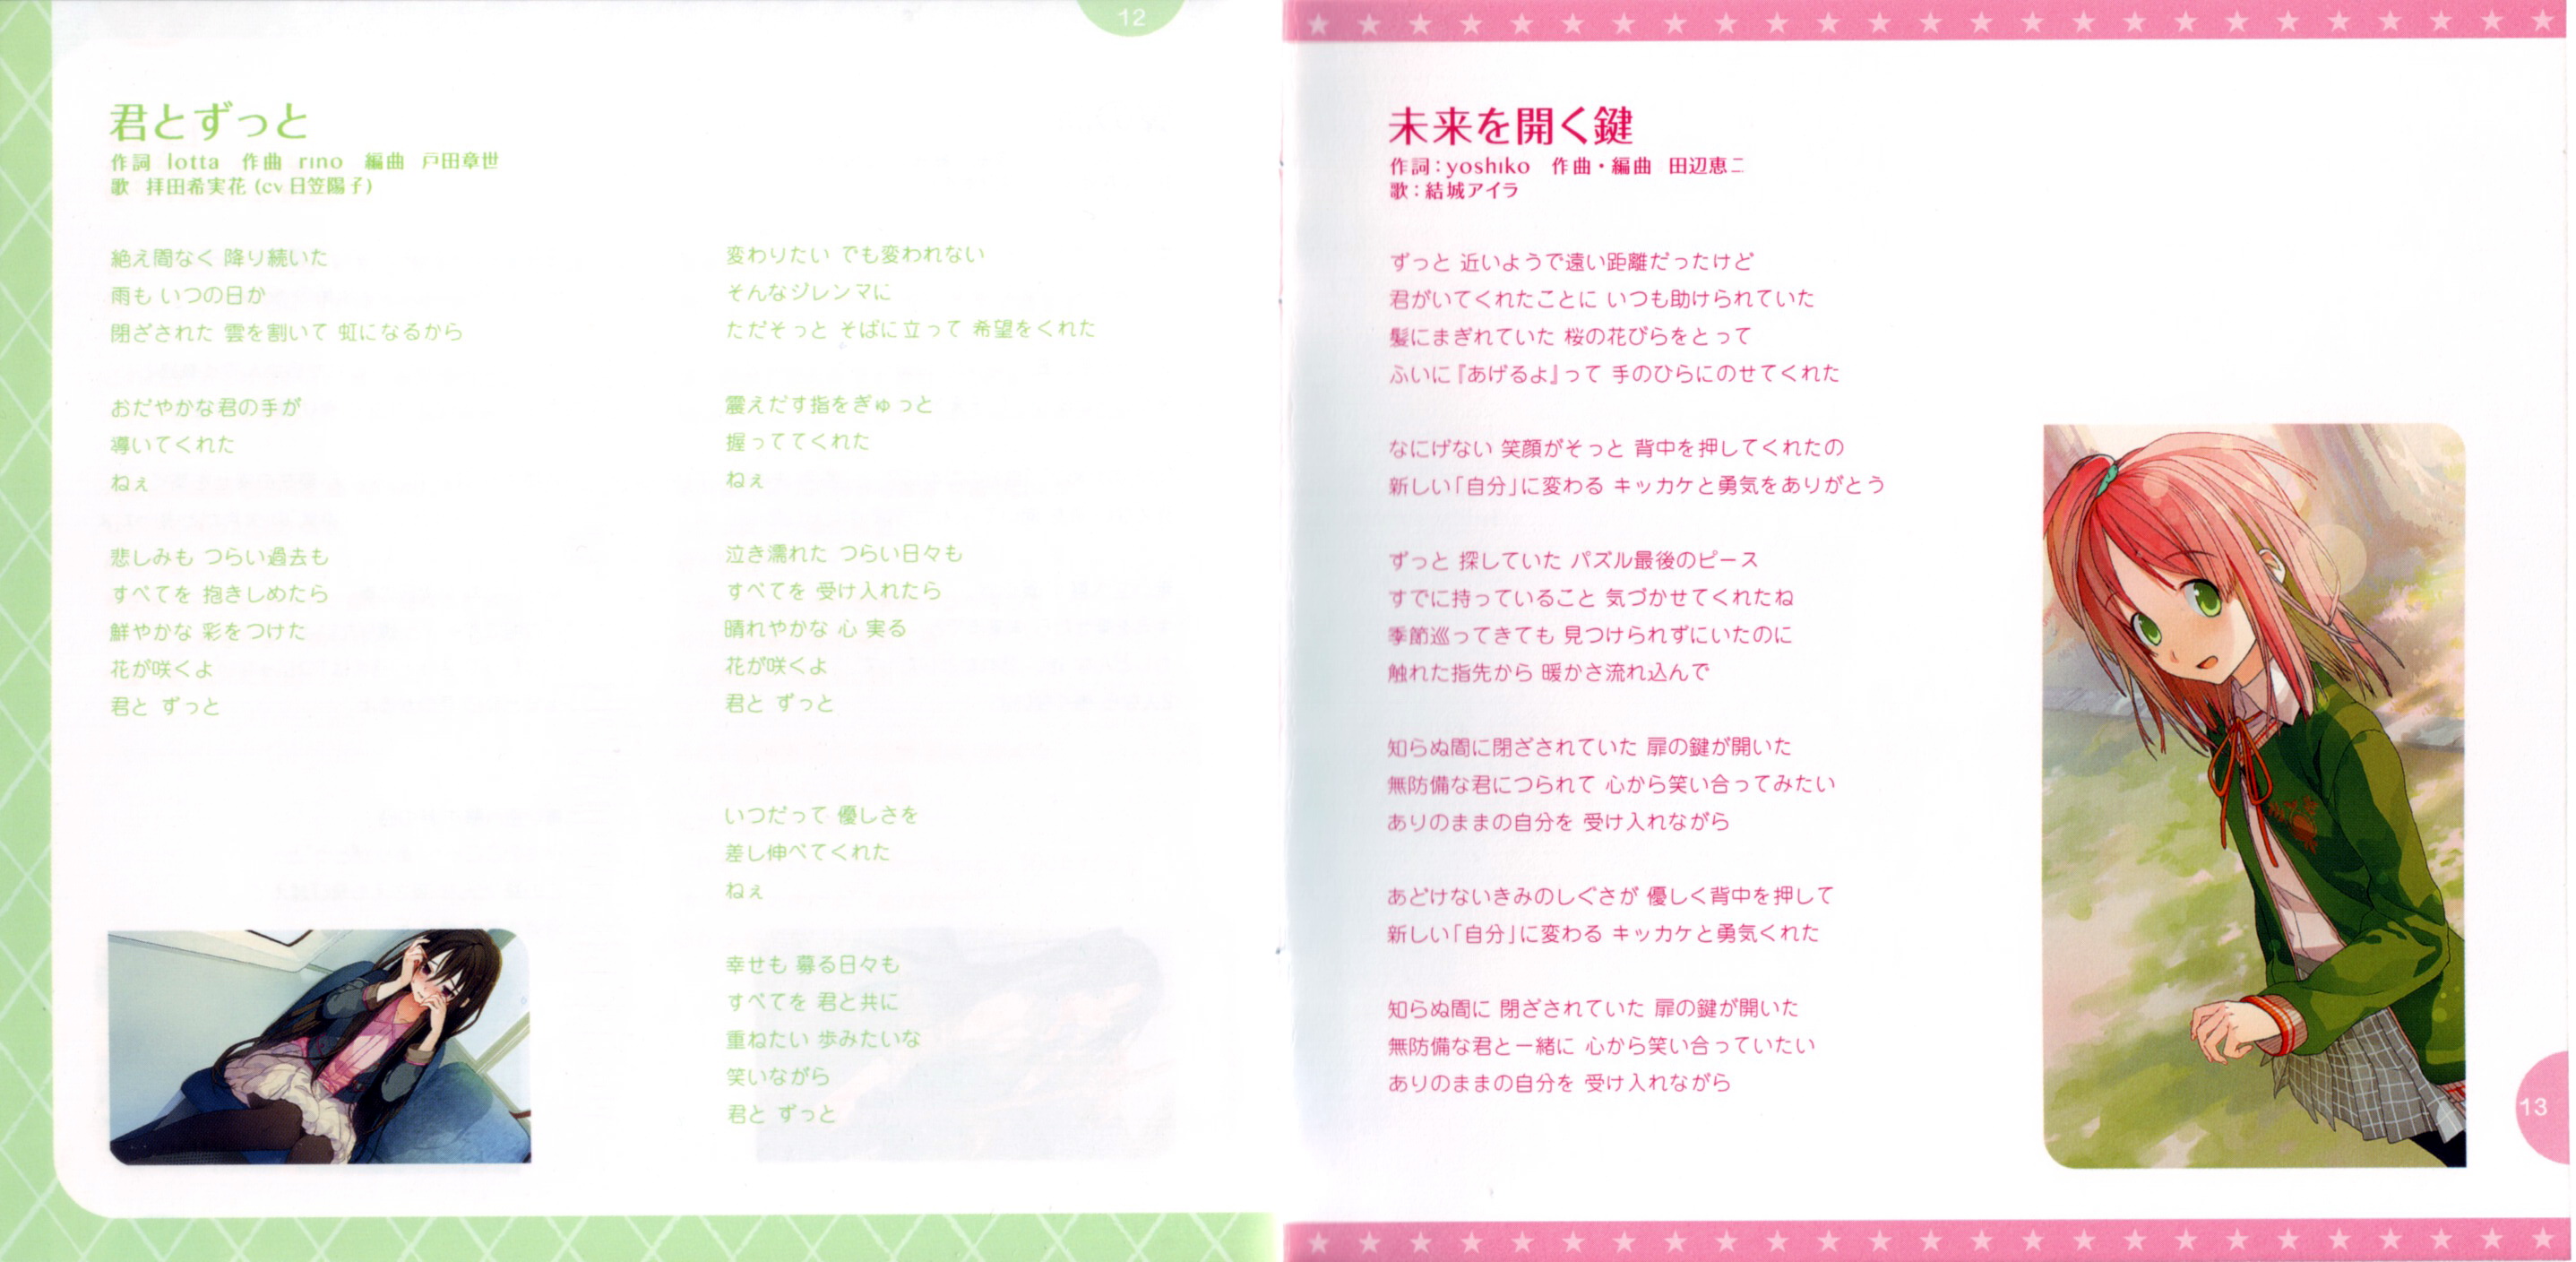 12
君とずっと
作詞 lotta 作曲 rino 編曲 戸田章世
歌 拝田希実花 (cv 日笠陽子)
絶え間なく 降り続いた
雨も いつの日か
閉ざされた 雲を割いて 虹になるから
おだやかな君の手が
導いてくれた
ねぇ
悲しみも つらい過去も
すべてを 抱きしめたら
鮮やかな 彩をつけた
花が咲くよ
君と ずっと
変わりたい でも変われない
そんなジレンマに
ただそっと そばに立って 希望をくれた
震えだす指をぎゅっと
握っててくれた
ねぇ
泣き濡れた つらい日々も
すべてを 受け入れたら
晴れやかな 心 実る
花が咲くよ
君と ずっと
いつだって 優しさを
差し伸べてくれた
ねぇ
幸せも 募る日々も
すべてを 君と共に
重ねたい 歩みたいな
笑いながら
君と ずっと
未来を開く鍵
作詞：yoshiko 作曲・編曲 田辺恵二
歌：結城アイラ
ずっと 近いようで遠い距離だったけど
君がいてくれたことに いつも助けられていた
髪にまぎれていた 桜の花びらをとって
ふいに『あげるよ』って 手のひらにのせてくれた
なにげない 笑顔がそっと 背中を押してくれたの
新しい「自分」に変わる キッカケと勇気をありがとう
ずっと 探していた パズル最後のピース
すでに持っていること 気づかせてくれたね
季節巡ってきても 見つけられずにいたのに
触れた指先から 暖かさ流れ込んで
知らぬ間に閉ざされていた 扉の鍵が開いた
無防備な君につられて 心から笑い合ってみたい
ありのままの自分を 受け入れながら
あどけないきみのしぐさが 優しく背中を押して
新しい「自分」に変わる キッカケと勇気くれた
知らぬ間に 閉ざされていた 扉の鍵が開いた
無防備な君と一緒に 心から笑い合っていたい
ありのままの自分を 受け入れながら
13